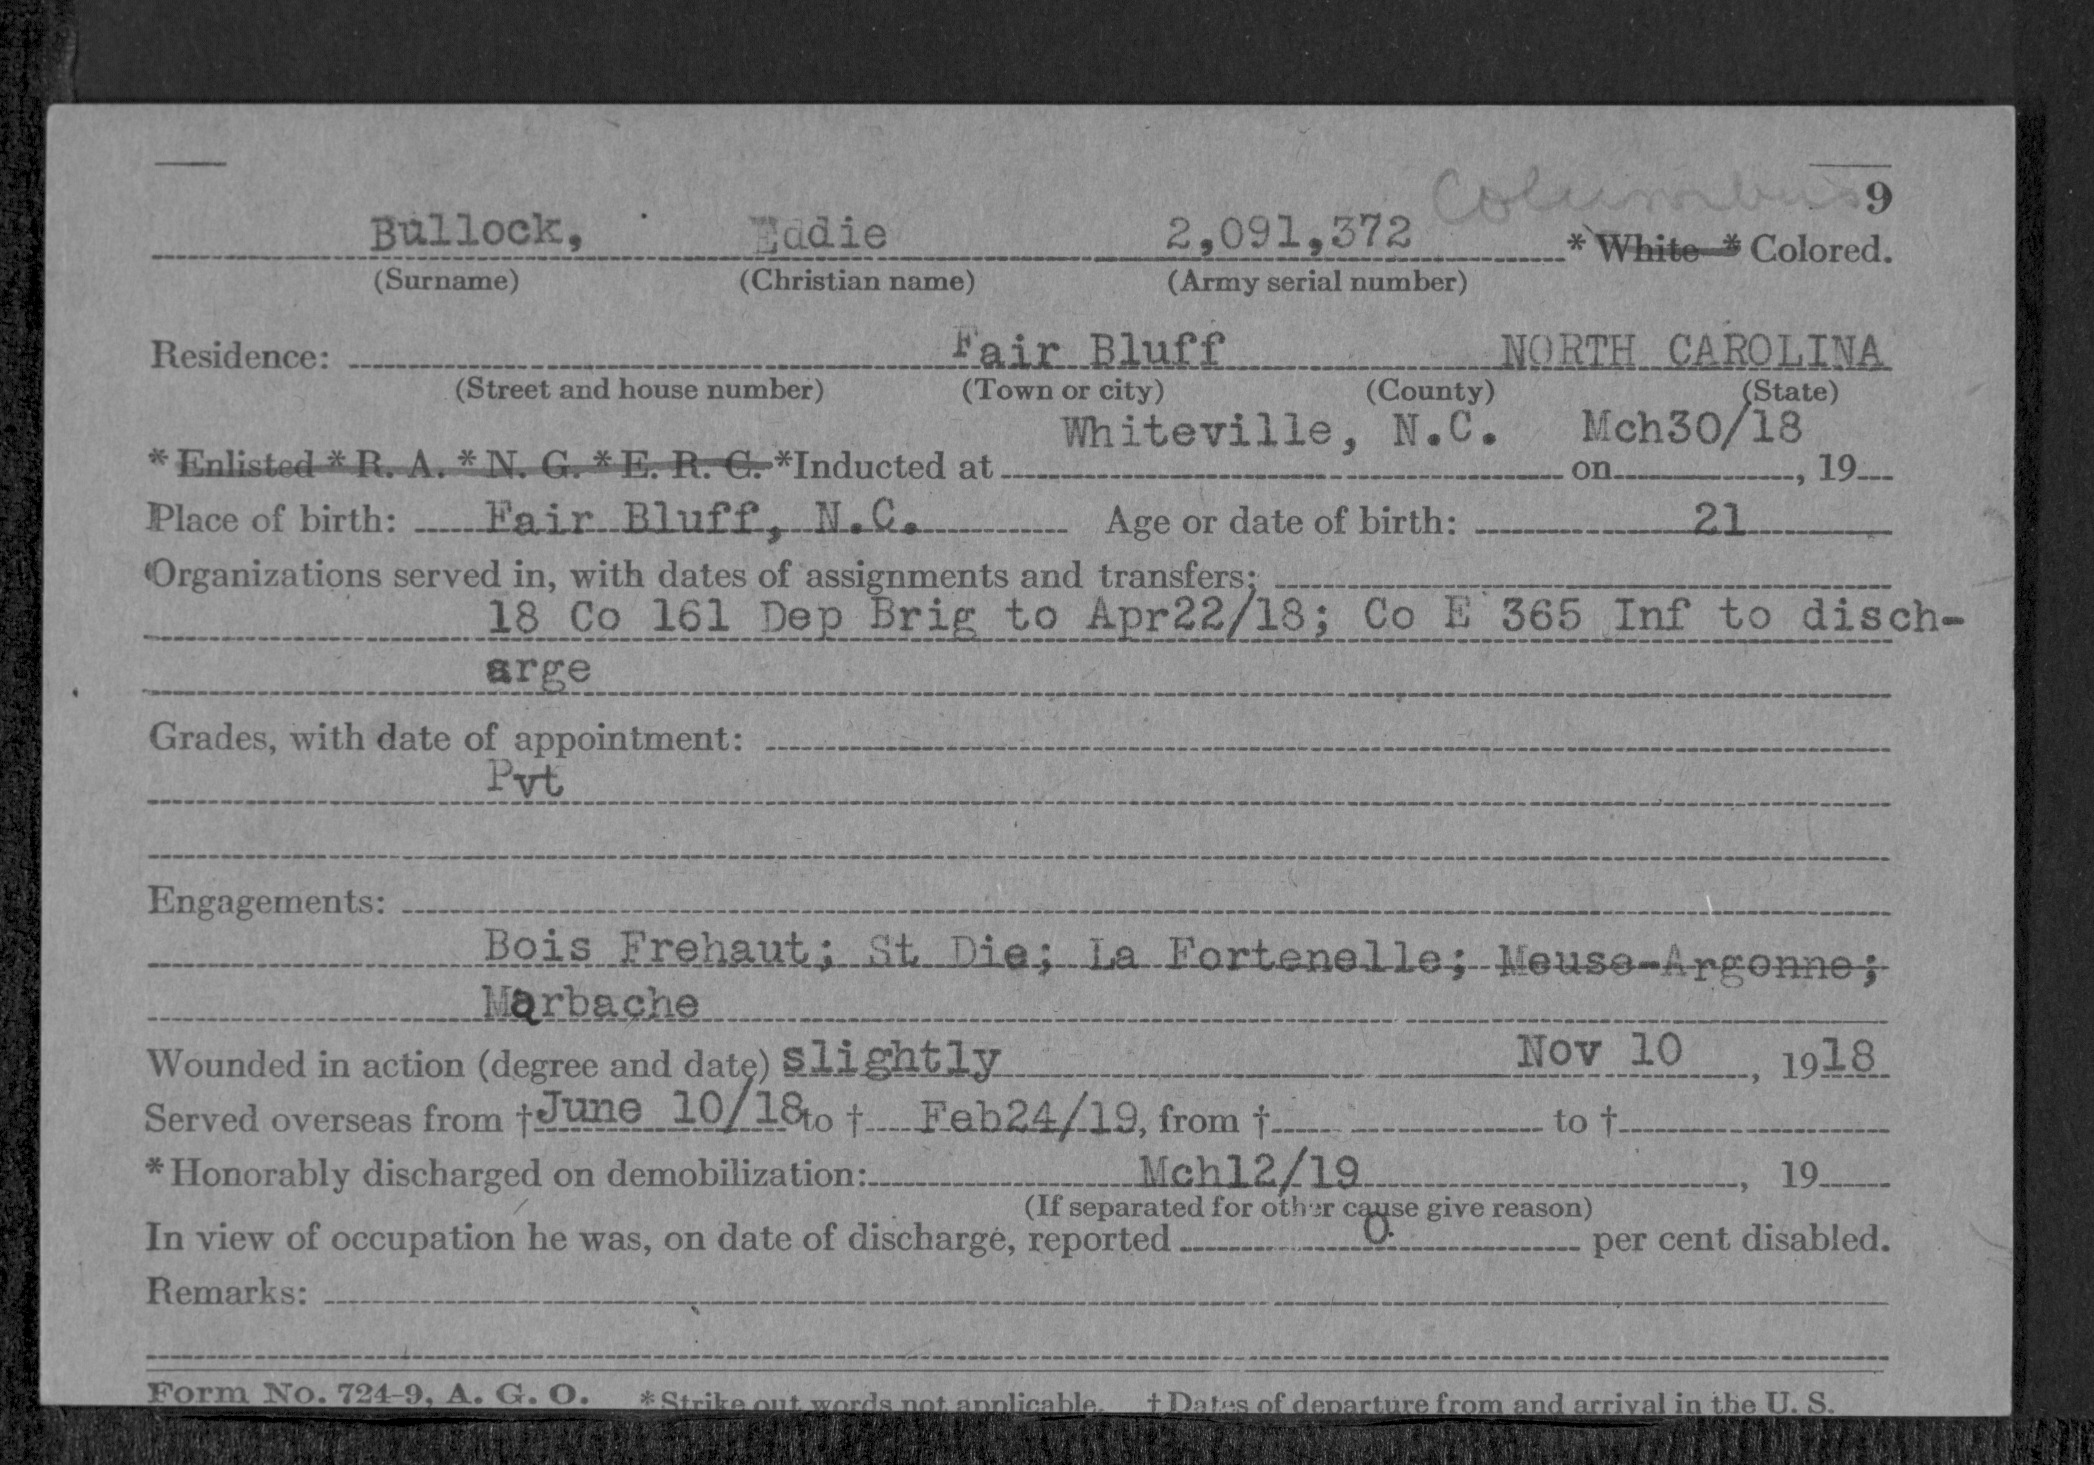 Columbus 9
Bullock, Eddie 2,091,372 * White * Colored.
(Surname) (Christian name) (Army serial number)
Residence: Fair Bluff NORTH CAROLINA
(Street and house number) (Town or city) (County) (State)
Whiteville, N.C. Mch30/18
* Enlisted * R. A. * N. G. * E. R. C. *Inducted at on , 19
Place of birth: Fair Bluff, N.C. Age or date of birth: 21
Organizations served in, with dates of assignments and transfers:
18 Co 161 Dep Brig to Apr22/18; Co E 365 Inf to disch-
arge
Grades, with date of appointment:
Pvt
Engagements:
Bois Frehaut; St Die; La Fortenelle; Meuse-Argonne;
Marbache
Wounded in action (degree and date) slightly Nov 10, 1918
Served overseas from † June 10/18 to † Feb24/19, from † to †
* Honorably discharged on demobilization: Mch12/19, 19
(If separated for other cause give reason)
In view of occupation he was, on date of discharge, reported 0 per cent disabled.
Remarks:
Form No. 724-9, A. G. O. * Strike out words not applicable. † Dates of departure from and arrival in the U. S.